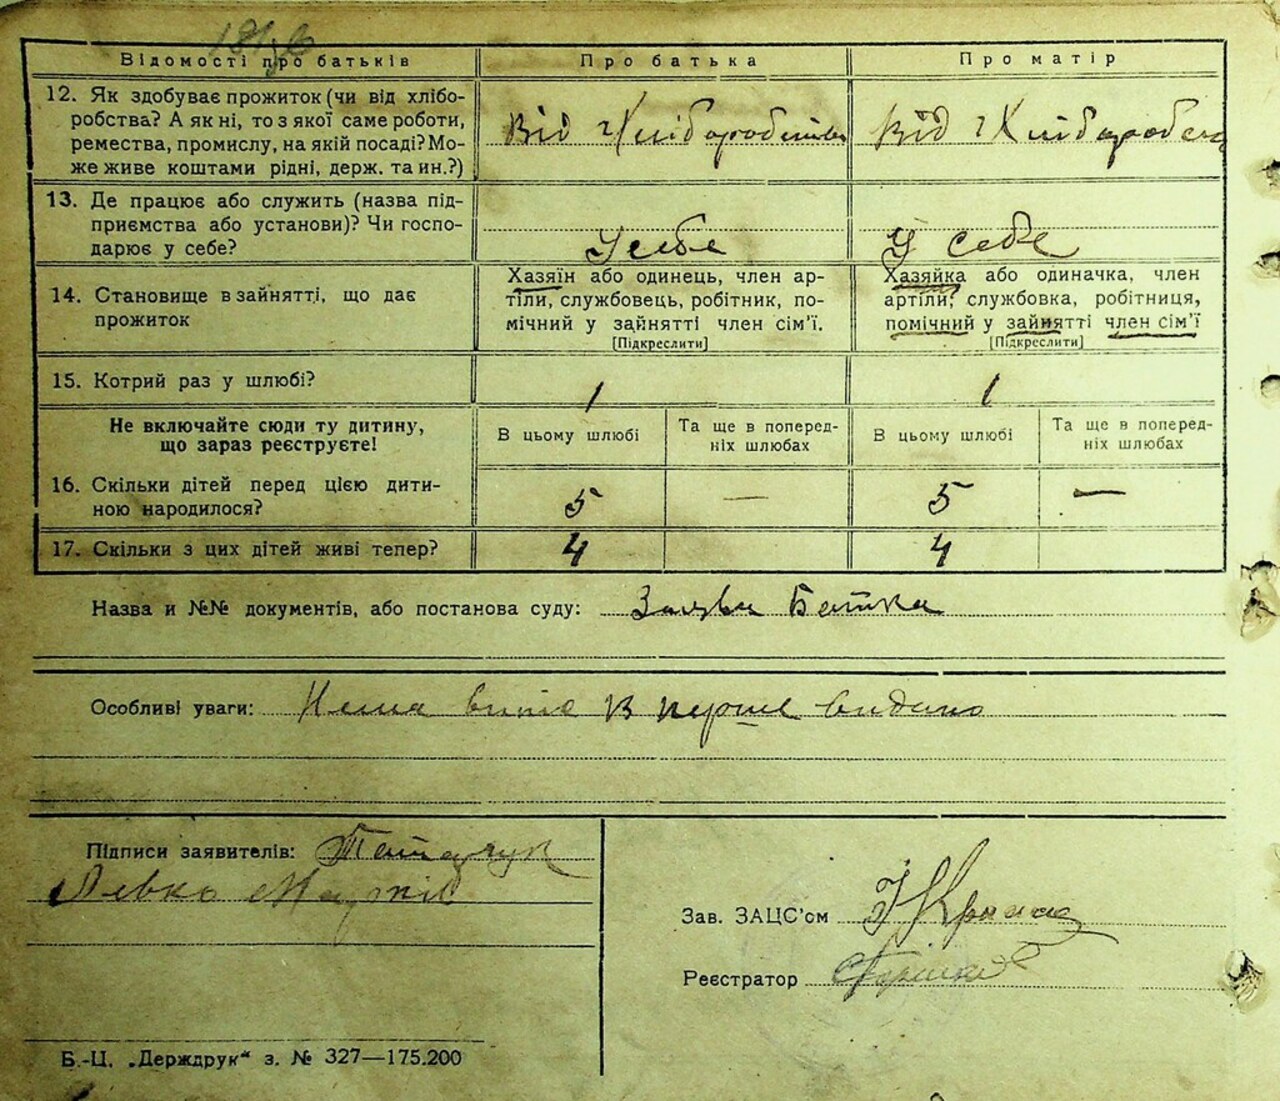 Відомості про батьків
Про батька
Про матір
12. Як здобуває прожиток (чи від хлібо-
робства? А як ні, то з якої саме роботи,
ремества, промислу, на якій посаді? Мо-
же живе коштами рідні, держ. та ин.?)
від Хліборобства
від Хлібороб
13. Де працює або служить (назва під-
приємства або установи)? Чи госпо-
дарює у себе?
У себе
У себе
14. Становище в зайнятті, що дає
прожиток
Хазяїн або одинець, член ар-
тіли, службовець, робітник, по-
мічний у зайнятті член сім’ї.
[Підкреслити]
Хазяйка або одиначка, член
артіли, службовка, робітниця,
помічний у зайнятті член сім’ї
[Підкреслити]
15. Котрий раз у шлюбі?
1
1
Не включайте сюди ту дитину,
що зараз реєструєте!
В цьому шлюбі
Та ще в поперед-
ніх шлюбах
В цьому шлюбі
Та ще в поперед-
ніх шлюбах
16. Скільки дітей перед цією дити-
ною народилося?
5
—
5
—
17. Скільки з цих дітей живі тепер?
4
4
Назва и №№ документів, або постанова суду: Заява Батька
Особливі уваги: витяг в перше видано
Підписи заявителів:
Левко
Зав. ЗАЦС’ом
Реєстратор
Б.-Ц. „Держдрук“ з. № 327—175.200